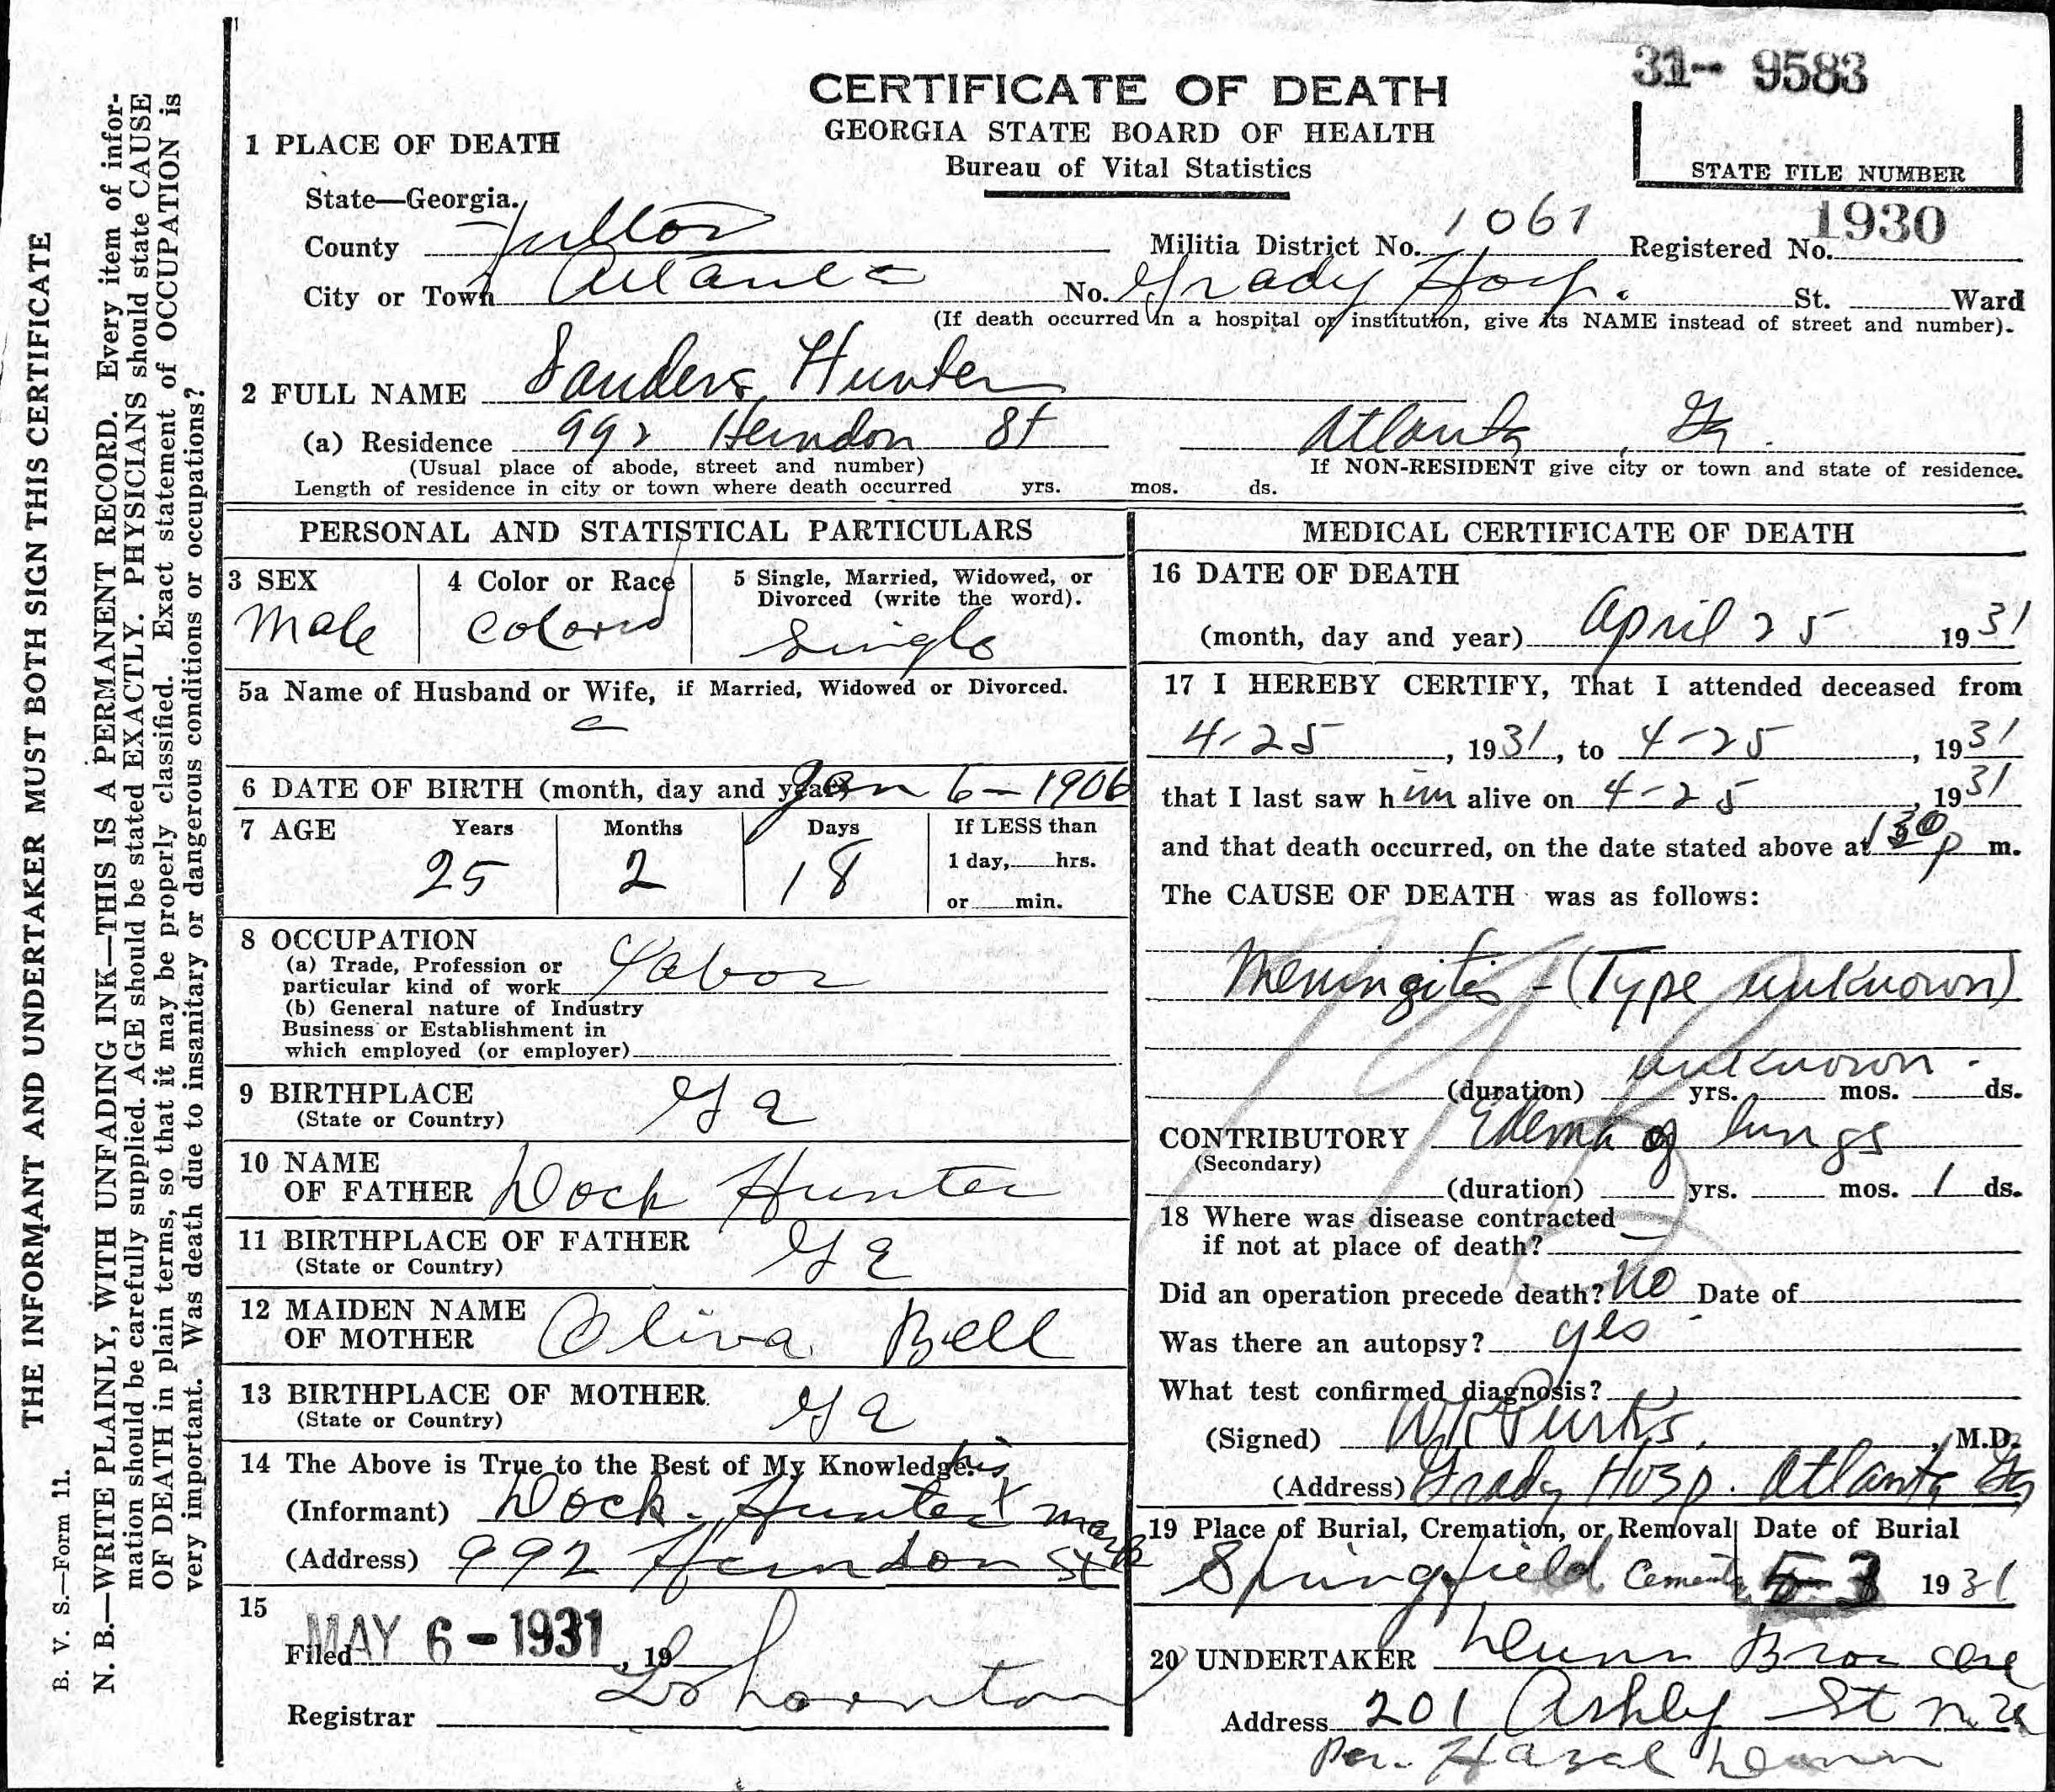 THE INFORMANT AND UNDERTAKER MUST BOTH SIGN THIS CERTIFICATE
B. V. S.—Form 11.
N. B.—WRITE PLAINLY, WITH UNFADING INK—THIS IS A PERMANENT RECORD. Every item of infor-
mation should be carefully supplied. AGE should be stated EXACTLY. PHYSICIANS should state CAUSE
OF DEATH in plain terms, so that it may be properly classified. Exact statement of OCCUPATION is
very important. Was death due to insanitary or dangerous conditions or occupations?
31-- 9583
CERTIFICATE OF DEATH
GEORGIA STATE BOARD OF HEALTH
Bureau of Vital Statistics
STATE FILE NUMBER
1 PLACE OF DEATH
State—Georgia.
County Fulton Militia District No. 1061 Registered No. 1930
City or Town Atlanta No. Grady Hosp. St. Ward
(If death occurred in a hospital or institution, give its NAME instead of street and number).
2 FULL NAME Sanders Hunter
(a) Residence 992 Herndon St Atlanta, Ga.
(Usual place of abode, street and number) If NON-RESIDENT give city or town and state of residence.
Length of residence in city or town where death occurred yrs. mos. ds.
PERSONAL AND STATISTICAL PARTICULARS
3 SEX 4 Color or Race 5 Single, Married, Widowed, or
Divorced (write the word).
Male Colored Single
5a Name of Husband or Wife, if Married, Widowed or Divorced.
6 DATE OF BIRTH (month, day and year) Jan 6 - 1906
7 AGE Years Months Days If LESS than
25 2 18 1 day, hrs.
or min.
8 OCCUPATION
(a) Trade, Profession or
particular kind of work Labor
(b) General nature of Industry
Business or Establishment in
which employed (or employer)
9 BIRTHPLACE Ga
(State or Country)
10 NAME
OF FATHER Dock Hunter
11 BIRTHPLACE OF FATHER Ga
(State or Country)
12 MAIDEN NAME
OF MOTHER Oliva Bell
13 BIRTHPLACE OF MOTHER Ga
(State or Country)
14 The Above is True to the Best of My Knowledge.
his
(Informant) Dock Hunter X mark
(Address) 992 Herndon St
15
Filed MAY 6 - 1931, 19
Registrar Thornton
MEDICAL CERTIFICATE OF DEATH
16 DATE OF DEATH
(month, day and year) April 25 1931
17 I HEREBY CERTIFY, That I attended deceased from
4-25, 1931, to 4-25, 1931
that I last saw him alive on 4-25, 1931
and that death occurred, on the date stated above at 130 p m.
The CAUSE OF DEATH was as follows:
Meningitis - (Type unknown)
unknown.
(duration) yrs. mos. ds.
CONTRIBUTORY Edema of lungs
(Secondary)
(duration) yrs. mos. 1 ds.
18 Where was disease contracted
if not at place of death? —
Did an operation precede death? No Date of
Was there an autopsy? yes
What test confirmed diagnosis?
(Signed) Purks, M.D.
(Address) Grady Hosp. Atlanta Ga
19 Place of Burial, Cremation, or Removal Date of Burial
Springfield 5-3 1931
20 UNDERTAKER Dunn Bros
Address 201 Ashby St N.W.
Per. Hazel Dunn